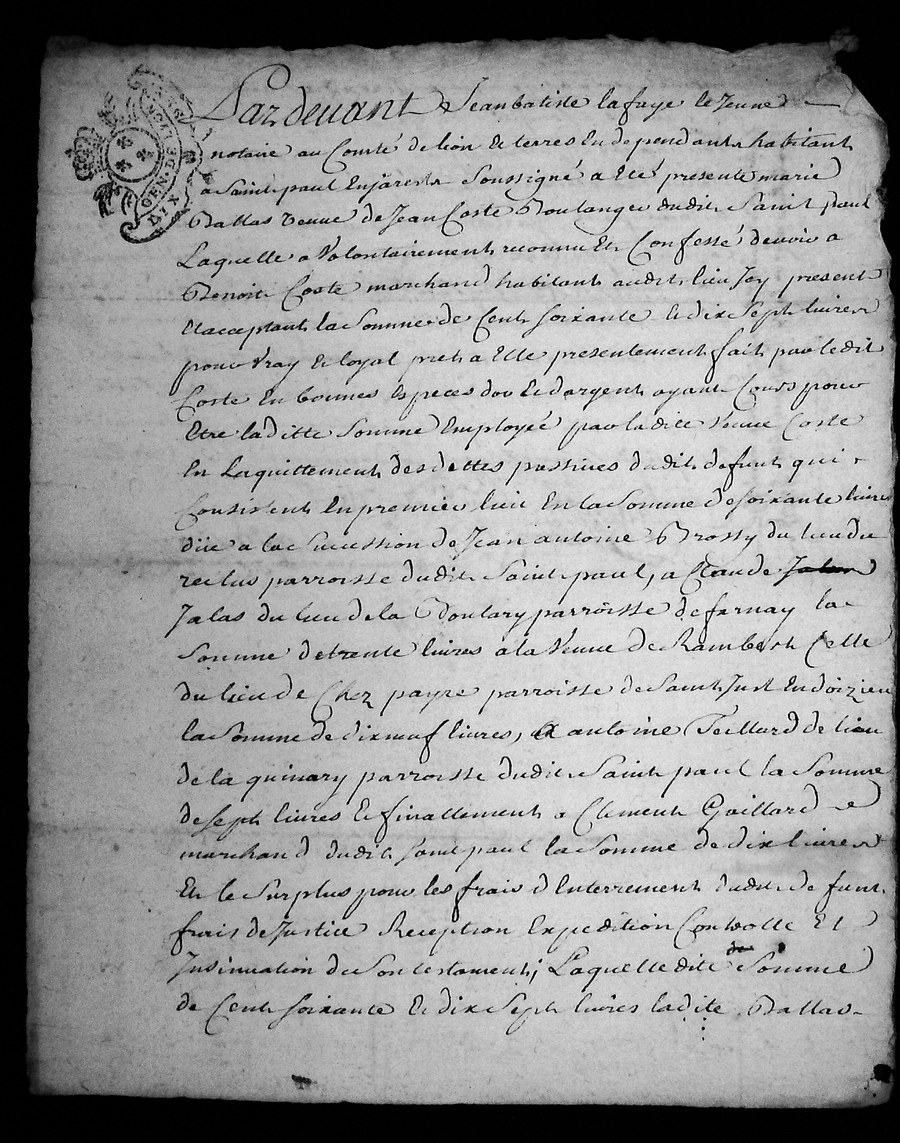 GEN. DE
DIX
Pardevant Jean batiste lafaye le Jeune
notaire au Comté de lion & terres En dependants habitant
a Saint paul Enjarests Soussigné a Eté presente marie
Ballas Veuve de Jean Coste Boulanger dudit Saint paul
Laquelle a Volontairement reconnu Et Confessé devoir a
Benoit Coste marchand habitant audit lieu Jcy present
Et acceptant la Somme de Cent Soixante & dix Sept livres
pour Vray & loyal prets a Elle presentement fait par ledit
Coste En bonnes Especes dor & dargent ayant Cours pour
Etre laditte Somme Employée par ladite Veuve Coste
En Laquittement des dettes passives dudit defunt qui
Consistent En premier lieu En la Somme de soixante livres
düe a la Sucession de Jean antoine Brossy du lieu du
reclus parroisse dudit Saint paul, a Claude
Jalas du lieu de la Boulary parroisse de farnay la
Somme de trente livres a la Veuve de Rambert Celle
du lieu de Chez payre parroisse de Saint Just En doizieu
la Somme de dixneuf livres, a antoine Teillard de lieu
de la quinary parroisse dudit Saint paul la Somme
de Sept livres & finallement a Clement Gaillard
marchand dudit Saint paul la Somme de dix livres
Et le Surplus pour les frais d'Enterrement dudit defunt
frais de Justice Reception Expedition Controlle Et
Jnsinuation de Son testament; Laquelle dite Somme
de Cent Soixante & dix Sept livres ladite Ballas